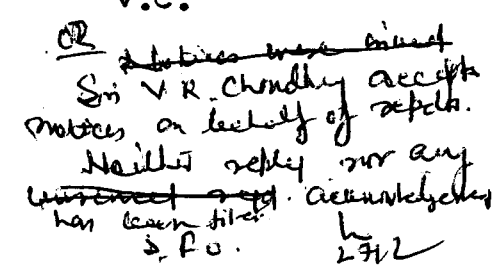 V.C.
OR
Notices were issued
Sri V.R. Chondhy accepts
notices on behalf of repdts.
Neither reply nor any
acknowledgement
has been filed
S.F.O.
27/2